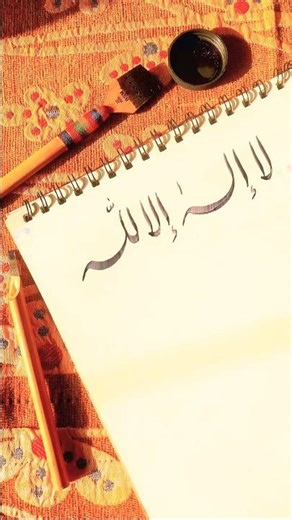 لا إلـٰه إلا اللّٰه